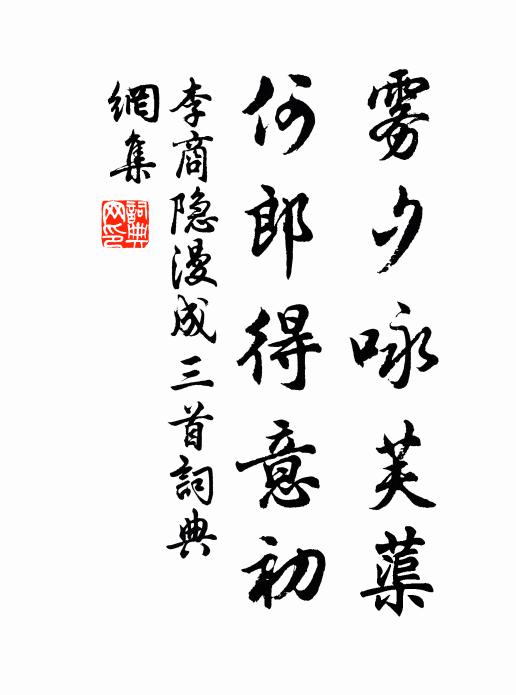 雾夕咏芙蕖
何郎得意初
李商隐漫成三首詞典
網集
詞典網印